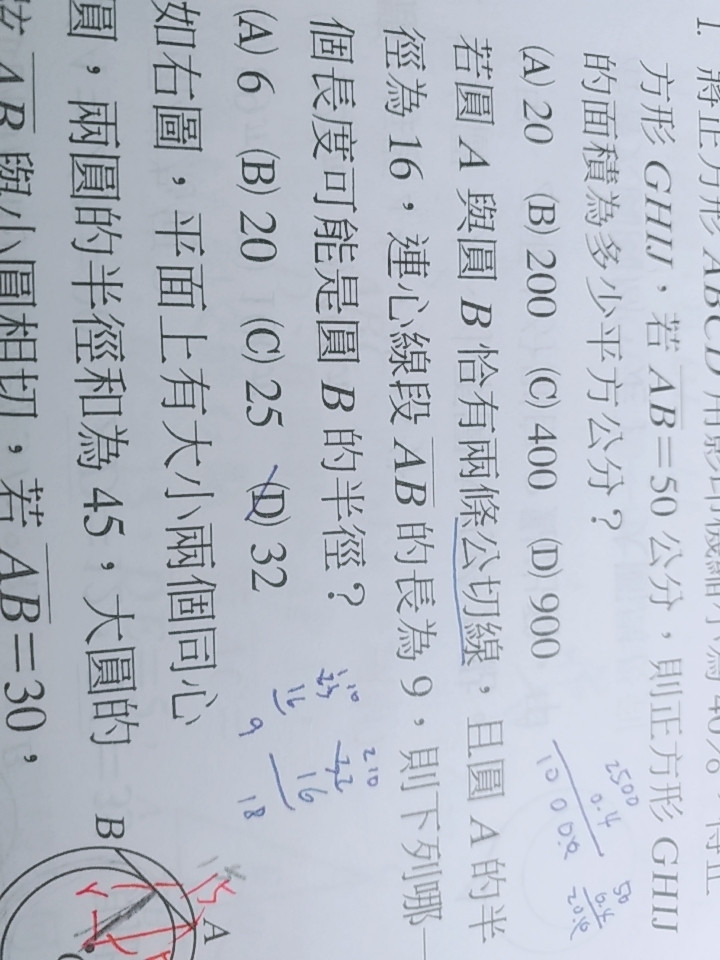 1. 將正方形 ABCD 用影印機縮小為 40%，得正
方形 GHIJ，若 AB=50 公分，則正方形 GHIJ
的面積為多少平方公分？
(A) 20 (B) 200 (C) 400 (D) 900
2500
0.4
1000.0
50
0.4
20.0
若圓 A 與圓 B 恰有兩條公切線，且圓 A 的半
徑為 16，連心線段 AB 的長為 9，則下列哪一
個長度可能是圓 B 的半徑？
(A) 6 (B) 20 (C) 25 (D) 32
16
9
16
18
如右圖，平面上有大小兩個同心
圓，兩圓的半徑和為 45，大圓的
弦 AB 與小圓相切，若 AB=30，
B
A
15
r